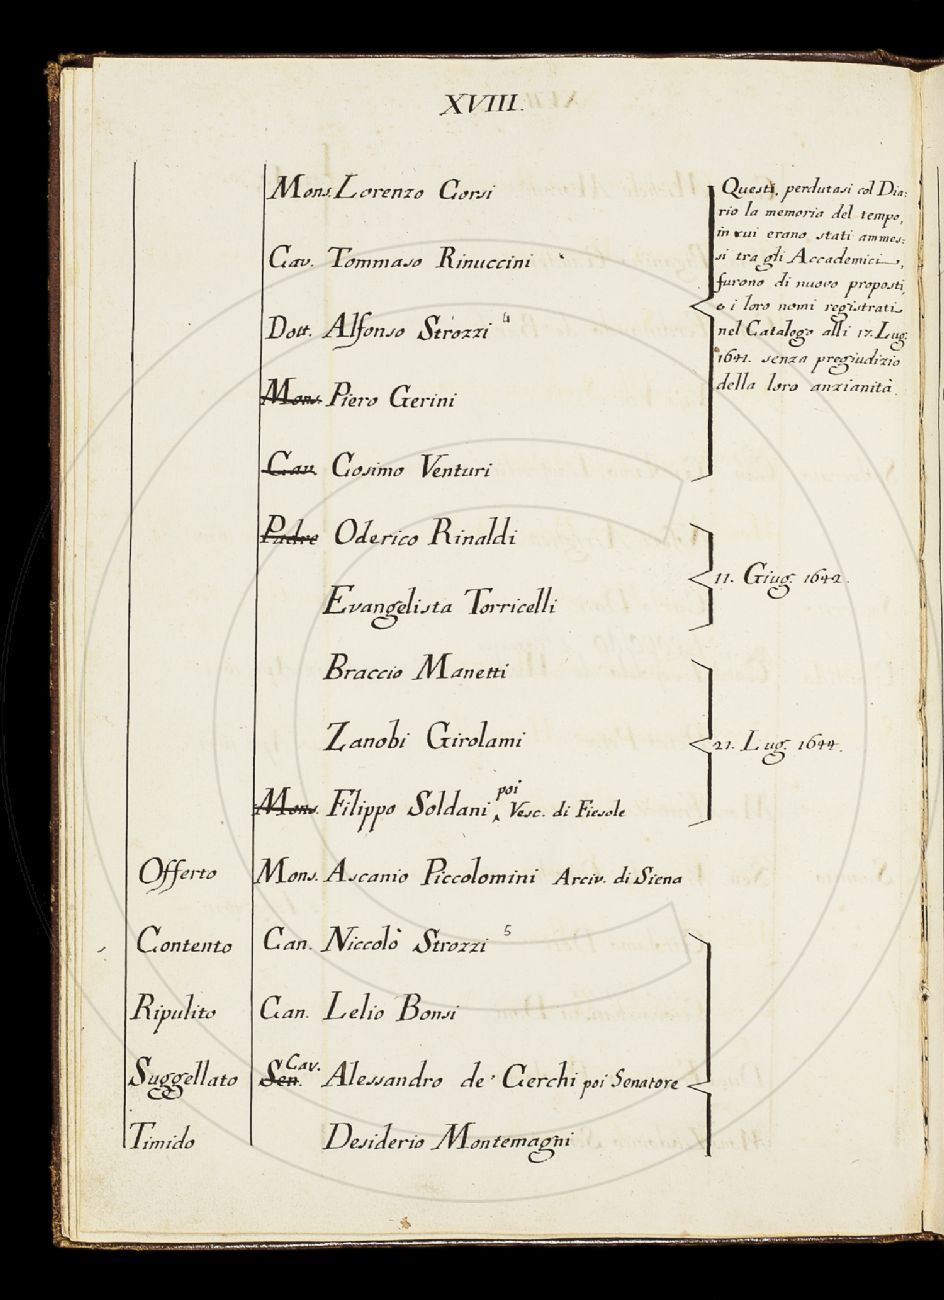 XVIII.
Mons. Lorenzo Corsi
Cav. Tommaso Rinuccini
Dott. Alfonso Strozzi 4
Mons. Piero Gerini
Cav. Cosimo Venturi
Questi, perdutasi col Dia:
rio la memoria del tempo,
in cui erano stati ammes:
si tra gli Accademici,
furono di nuovo proposti,
e i loro nomi registrati
nel Catalogo alli 17. Lug.
1641. senza pregiudizio
della loro anzianità.
Padre Oderico Rinaldi
Evangelista Torricelli
11. Giug. 1642.
Braccio Manetti
Zanobi Girolami
Mons. Filippo Soldani poi Vesc. di Fiesole
21. Lug. 1644.
Offerto Mons. Ascanio Piccolomini Arciv. di Siena
Contento Can. Niccolò Strozzi 5
Ripulito Can. Lelio Bonsi
Suggellato Sen. Cav. Alessandro de' Cerchi poi Senatore
Timido Desiderio Montemagni